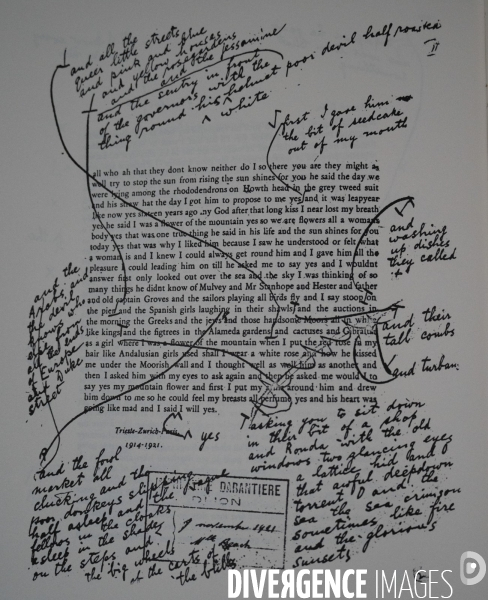 and all the
queer little streets
and pink and blue
and yellow houses
and the rosegardens
and the jessamine
and the sentry in front
of the governors with the
thing round his white helmet poor devil half roasted
II
first I gave him
the bit of seedcake
out of my mouth
all who ah that they dont know neither do I so there you are they might as
well try to stop the sun from rising the sun shines for you he said the day we
were lying among the rhododendrons on Howth head in the grey tweed suit
and his straw hat the day I got him to propose to me yes and it was leapyear
like now yes sixteen years ago my God after that long kiss I near lost my breath
yes he said I was a flower of the mountain yes so we are flowers all a womans
body yes that was one true thing he said in his life and the sun shines for you
today yes that was why I liked him because I saw he understood or felt what
a woman is and I knew I could always get round him and I gave him all the
pleasure I could leading him on till he asked me to say yes and I wouldnt
answer first only looked out over the sea and the sky I was thinking of so
many things he didnt know of Mulvey and Mr Stanhope and Hester and father
and old captain Groves and the sailors playing all birds fly and I say stoop on
the pier and the Spanish girls laughing in their shawls and the auctions in
the morning the Greeks and the jews and those handsome Moors all in white
like kings and the figtrees in the Alameda gardens and cactuses and Gibraltar
as a girl where I was a flower of the mountain when I put the red rose in my
hair like Andalusian girls used shall I wear a white rose and how he kissed
me under the Moorish wall and I thought well as well him as another and
then I asked him with my eyes to ask again and then he asked me would I to
say yes my mountain flower and first I put my arms around him and drew
him down to me so he could feel my breasts all perfume yes and his heart was
going like mad and I said I will yes.
Trieste-Zurich-Paris,
1914-1921.
yes
and
washing
up dishes
they called
it
and their
tall combs
and turbans
asking you to sit down
in their bit of a shop
and Ronda with the old
windows two glancing eyes
a lattice hid and O
that awful deepdown
torrent O and the
sea the sea crimson
sometimes like fire
and the glorious
sunsets
and the fowl
market all
clucking
and the
poor donkeys slipping
half asleep and the vague
fellows in the cloaks
asleep in the shade
on the steps and
the big wheels
of the carts of
the bulls
DARANTIERE
DIJON
DIVERGENCE IMAGES